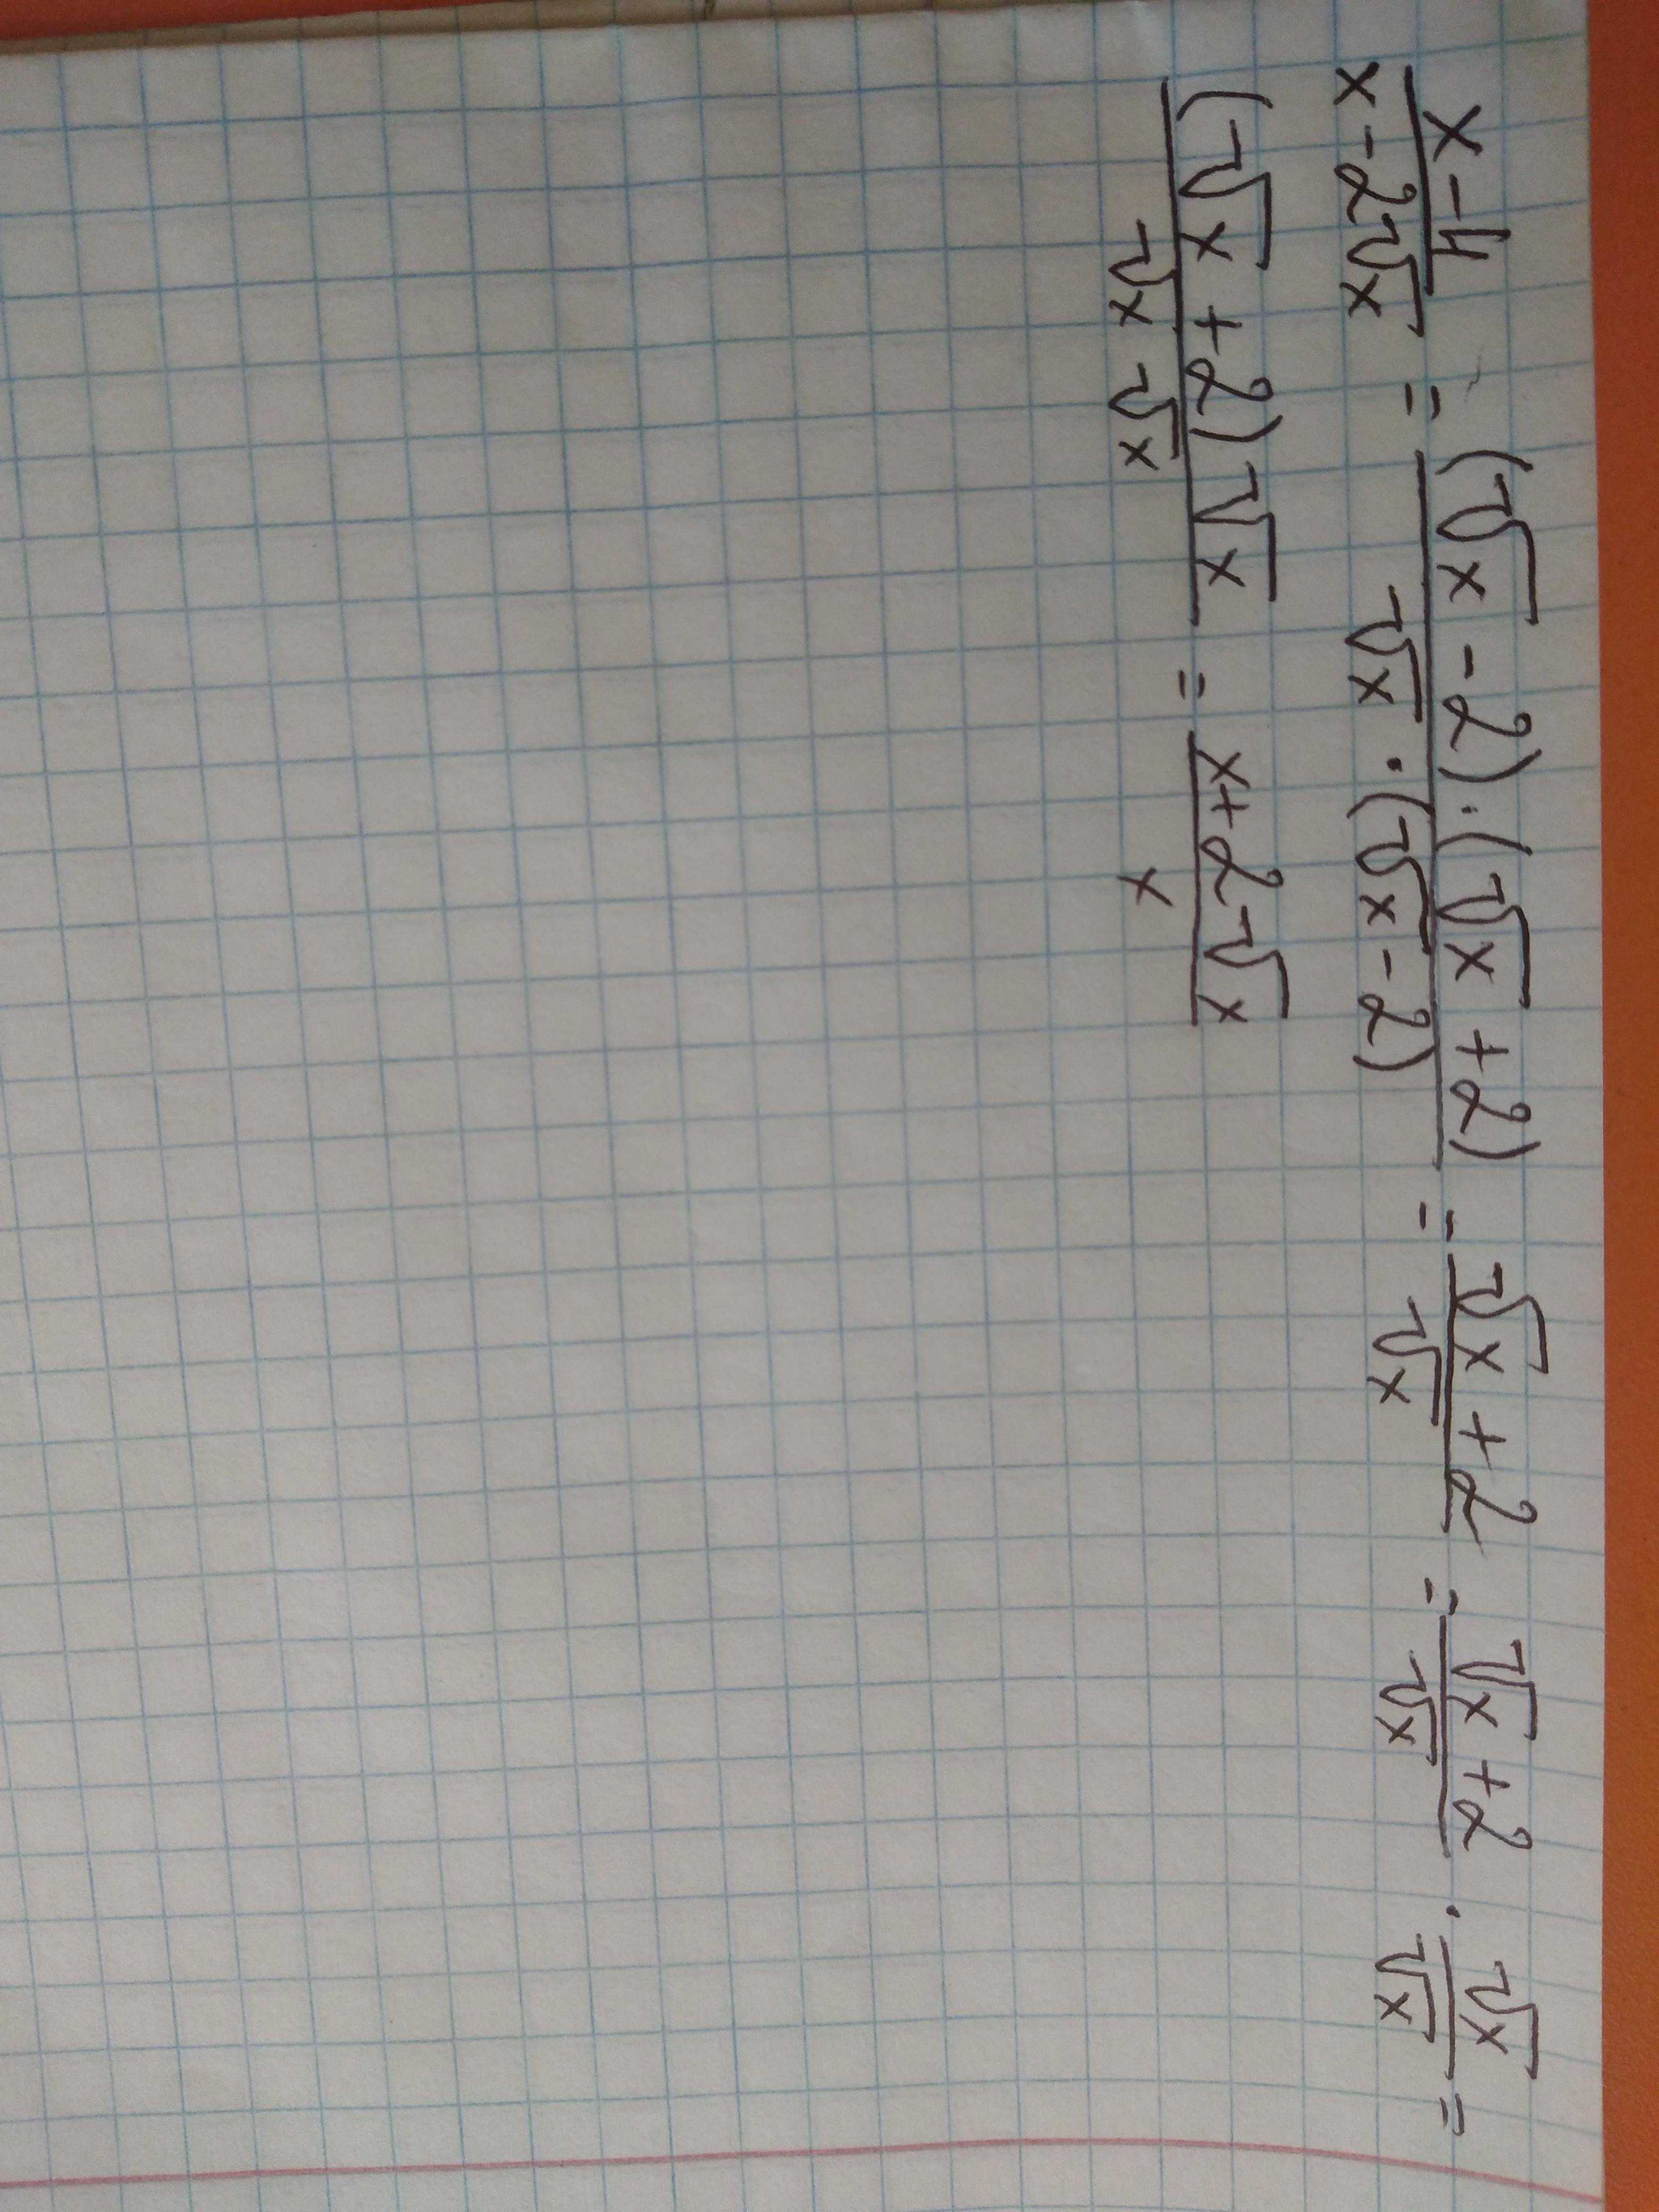 (x-4)/(x-2√x) = ((√x-2)·(√x+2))/(√x·(√x-2)) = (√x+2)/√x = (√x+2)/√x · √x/√x =
((√x+2)√x)/(√x √x) = (x+2√x)/x